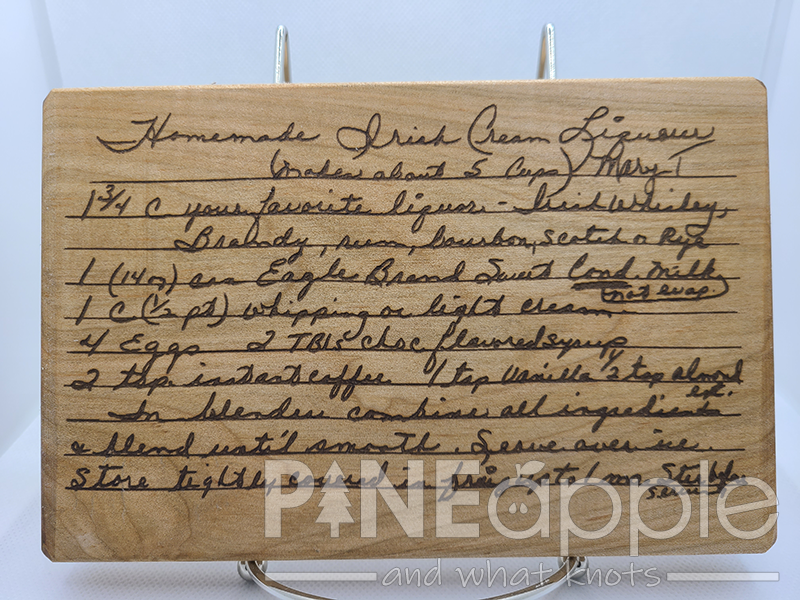 Homemade Irish Cream Liqueur
(makes about 5 Cups) Mary T
1 3/4 C your favorite liquor - Irish Whiskey,
Brandy, rum, bourbon, scotch or Rye
1 (14 oz) can Eagle Brand Sweet Cond. Milk
(not evap.)
1 C (1/2 pt) whipping or light cream
4 Eggs 2 TBLS choc flavored syrup
2 tsp instant coffee 1 tsp Vanilla 1/2 tsp almond
ext.
In blender combine all ingredients
& blend until smooth. Serve over ice.
Store tightly covered in frig up to 1 mo. Stir before
serving
PINEapple
and what knots